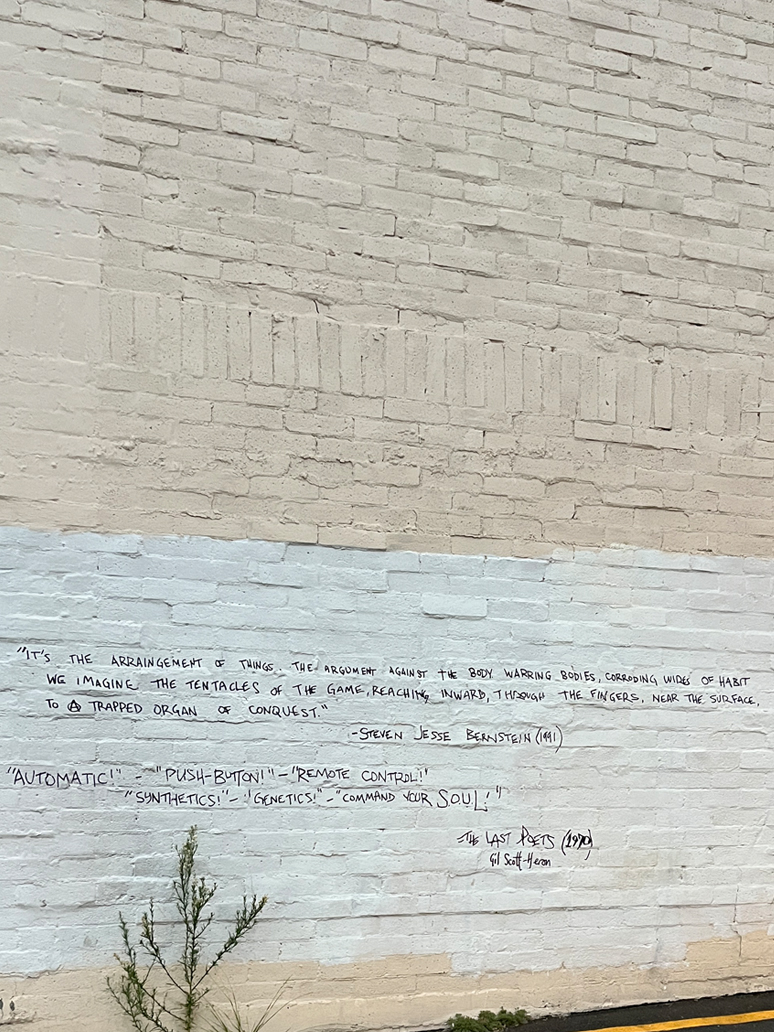 "IT'S THE ARRAINGEMENT OF THINGS. THE ARGUMENT AGAINST THE BODY WARRING BODIES, CORRODING WIRES OF HABIT
WE IMAGINE THE TENTACLES OF THE GAME, REACHING INWARD, THROUGH THE FINGERS, NEAR THE SURFACE,
TO A TRAPPED ORGAN OF CONQUEST."
-STEVEN JESSE BERNSTEIN (1991)
"AUTOMATIC!" - "PUSH-BUTTON!" - "REMOTE CONTROL!"
"SYNTHETICS!" - "GENETICS!" - "COMMAND YOUR S.O.U.L.!"
-THE LAST POETS (1970)
Gil Scott-Heron